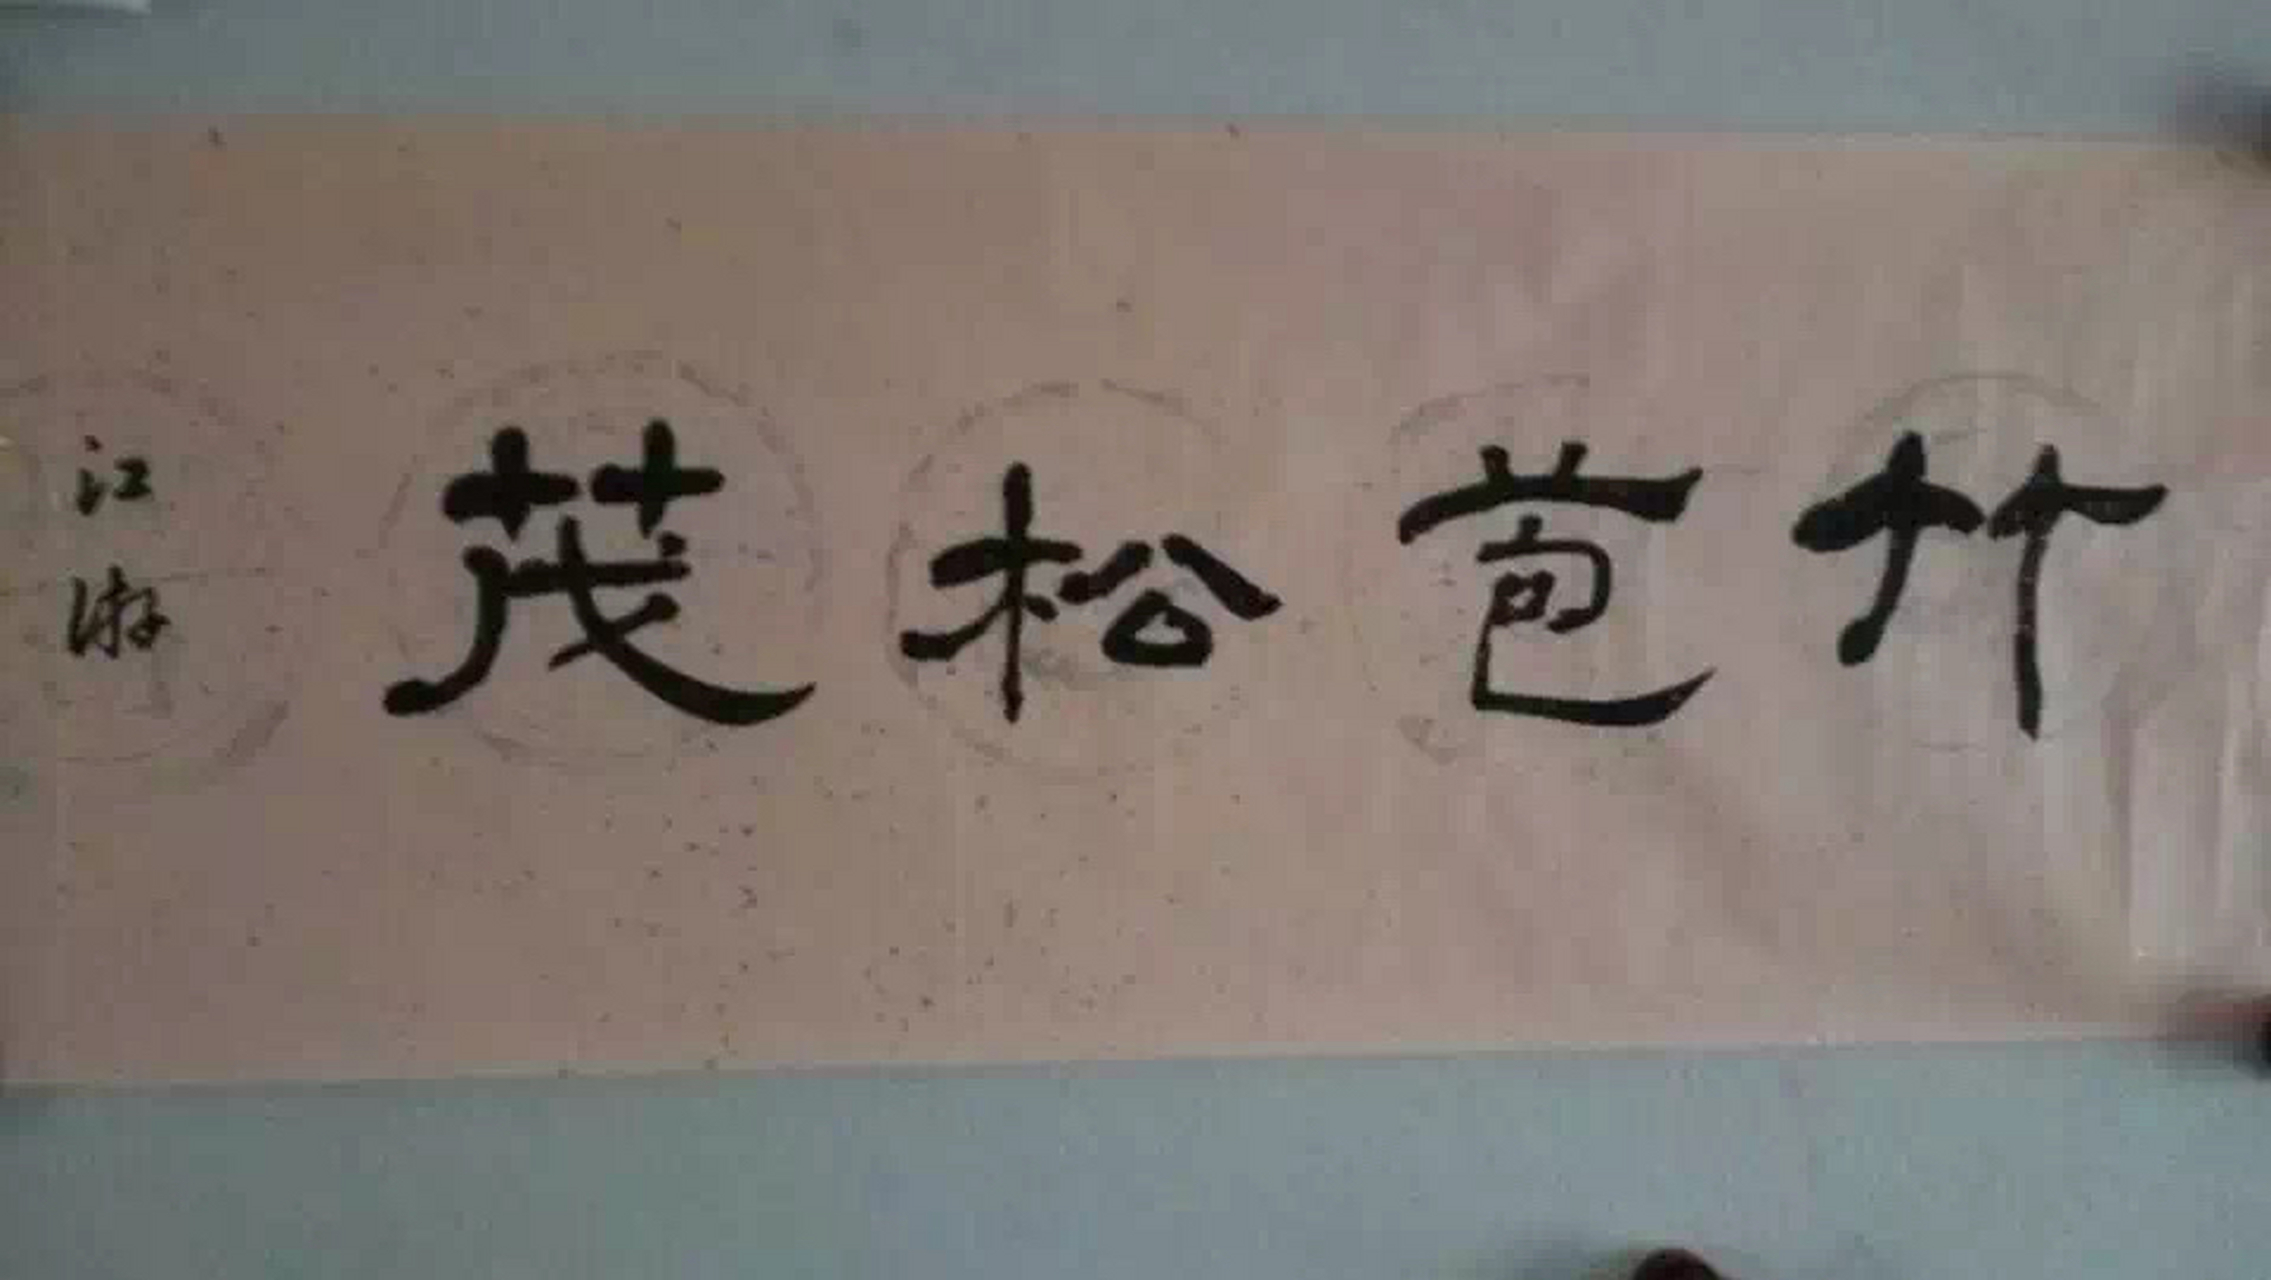 竹苞松茂
江游